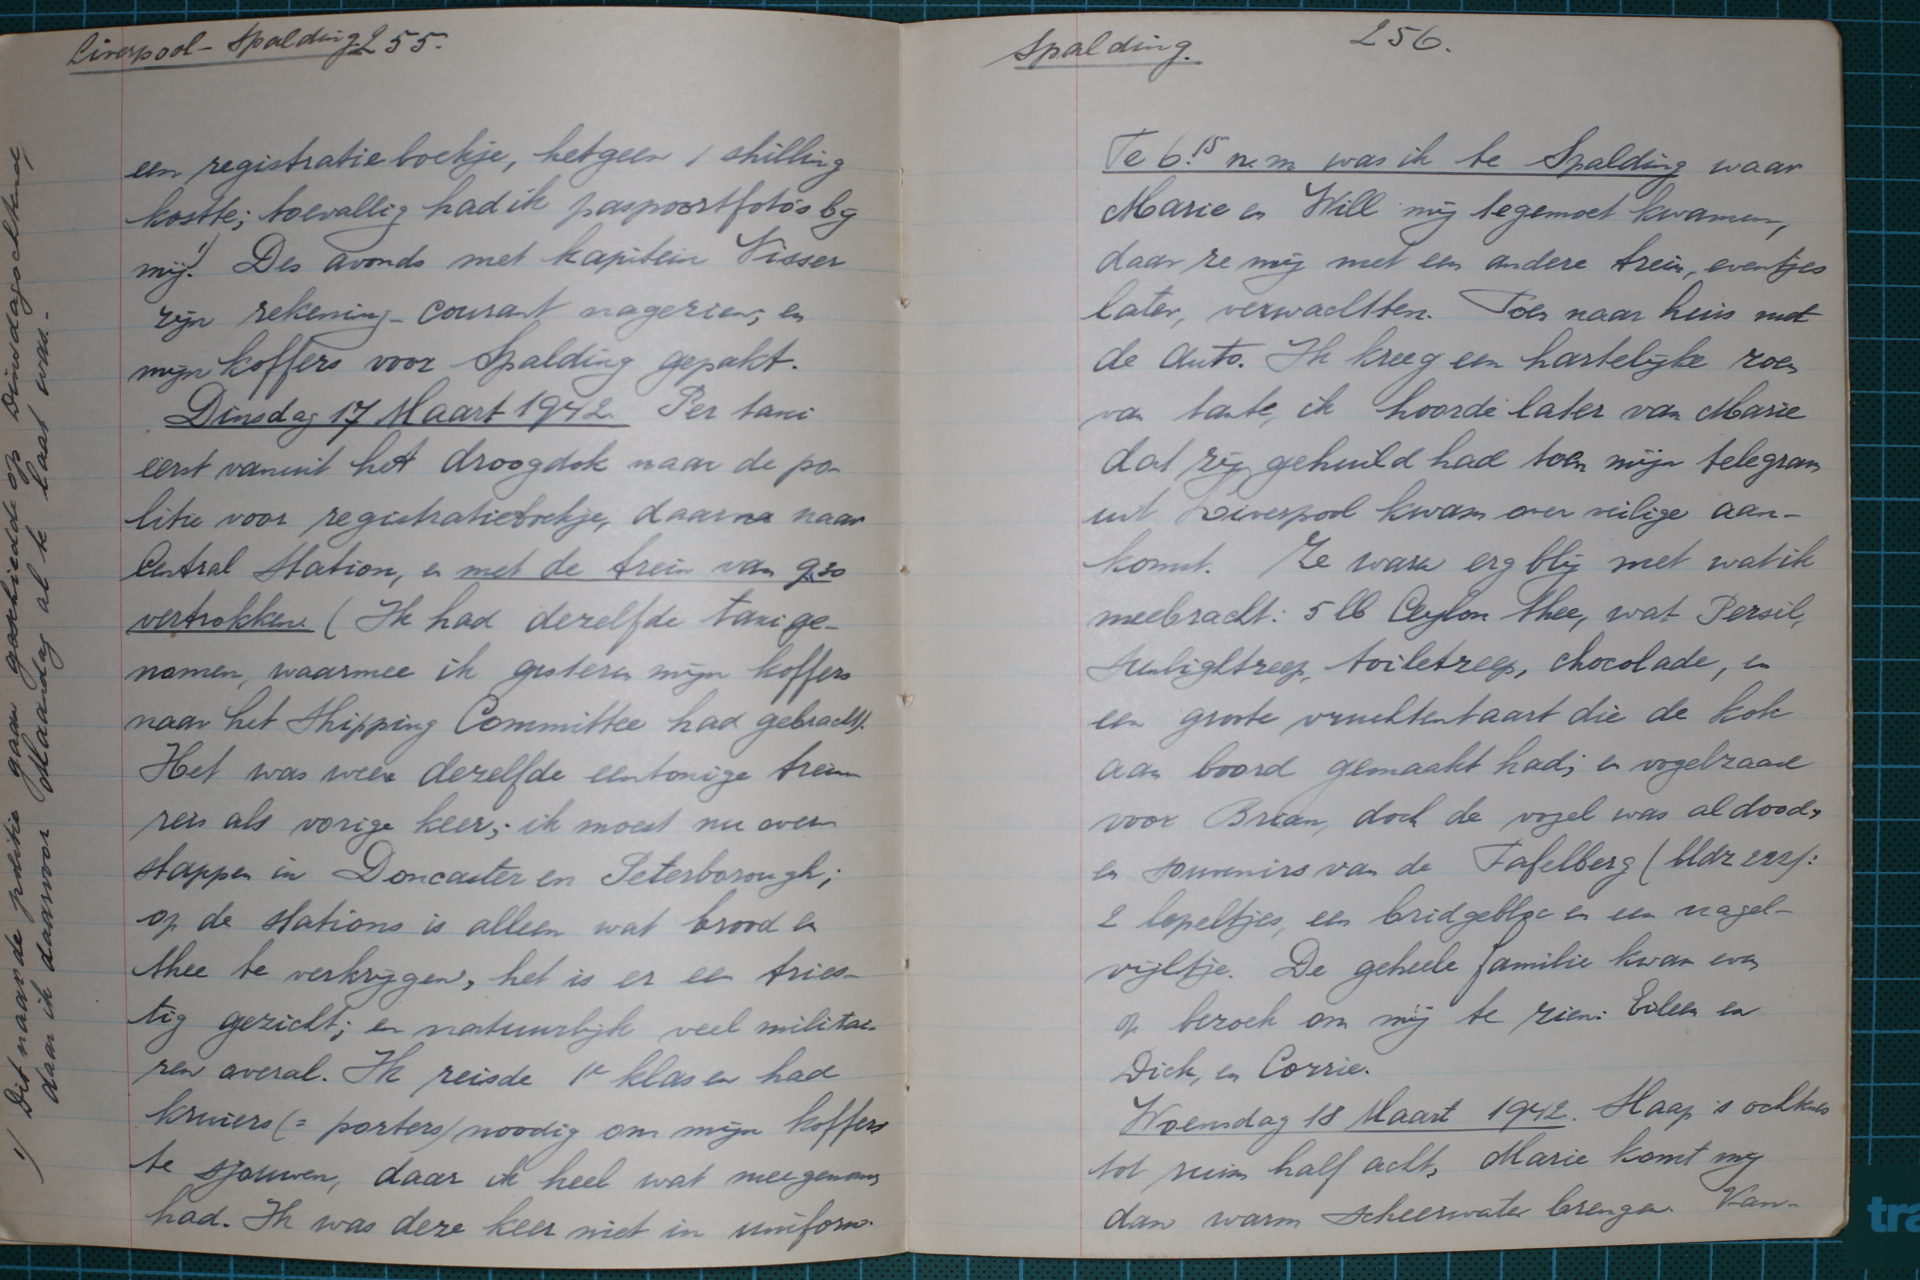 Liverpool - Spalding 255.
een registratieboekje, hetgeen 1 shilling
kostte; toevallig had ik paspoortfoto's bij
mij. 1) Des avonds met kapitein Visser
zijn rekening-courant nagezien, en
mijn koffers voor Spalding gepakt.
Dinsdag 17 Maart 1942. Per taxi
eerst vanuit het droogdok naar de po-
litie voor registratieboekje, daarna naar
Central Station, en met de trein van 9.30
vertrokken. (Ik had dezelfde taxi ge-
nomen, waarmee ik gisteren mijn koffers
naar het Shipping Committee had gebracht).
Het was weer dezelfde eentonige trein
reis als vorige keer; ik moest nu over
stappen in Doncaster en Peterborough;
op de stations is alleen wat brood en
thee te verkrijgen, het is er een tries-
tig gezicht; en natuurlijk veel militai-
ren overal. Ik reisde 1e klas en had
kruiers (= porters) noodig om mijn koffers
te sjouwen, daar ik heel wat meegenomen
had. Ik was deze keer niet in uniform.
1) Dit naar de politie gaan geschiedde op Dinsdagochtend,
daar ik daarvoor Maandag al te laat was.-
Spalding. 256.
Te 6.15 n.m was ik te Spalding waar
Marie en Will mij tegemoet kwamen,
daar ze mij met een andere trein, eventjes
later, verwachtten. Toen naar huis met
de auto. Ik kreeg een hartelijke zoen
van tante, ik hoorde later van Marie
dat zij gehuild had toen mijn telegram
uit Liverpool kwam over veilige aan-
komst. Ze waren erg blij met wat ik
meebracht: 5 lb Ceylon thee, wat Persil,
Sunlightzeep, toiletzeep, chocolade, en
een groote vruchtentaart die de kok
aan boord gemaakt had; en vogelzaad
voor Brian, doch de vogel was al dood,
en souvenirs van de Tafelberg (bldz :
2 lepeltjes, een bridgebloc en een nagel-
vijltje. De geheele familie kwam even
op bezoek om mij te zien: Eileen en
Dick, en Corrie.
Woensdag 18 Maart 1942. Slaap 's ochtends
tot ruim half acht, Marie komt mij
dan warm scheerwater brengen. Van-
tra